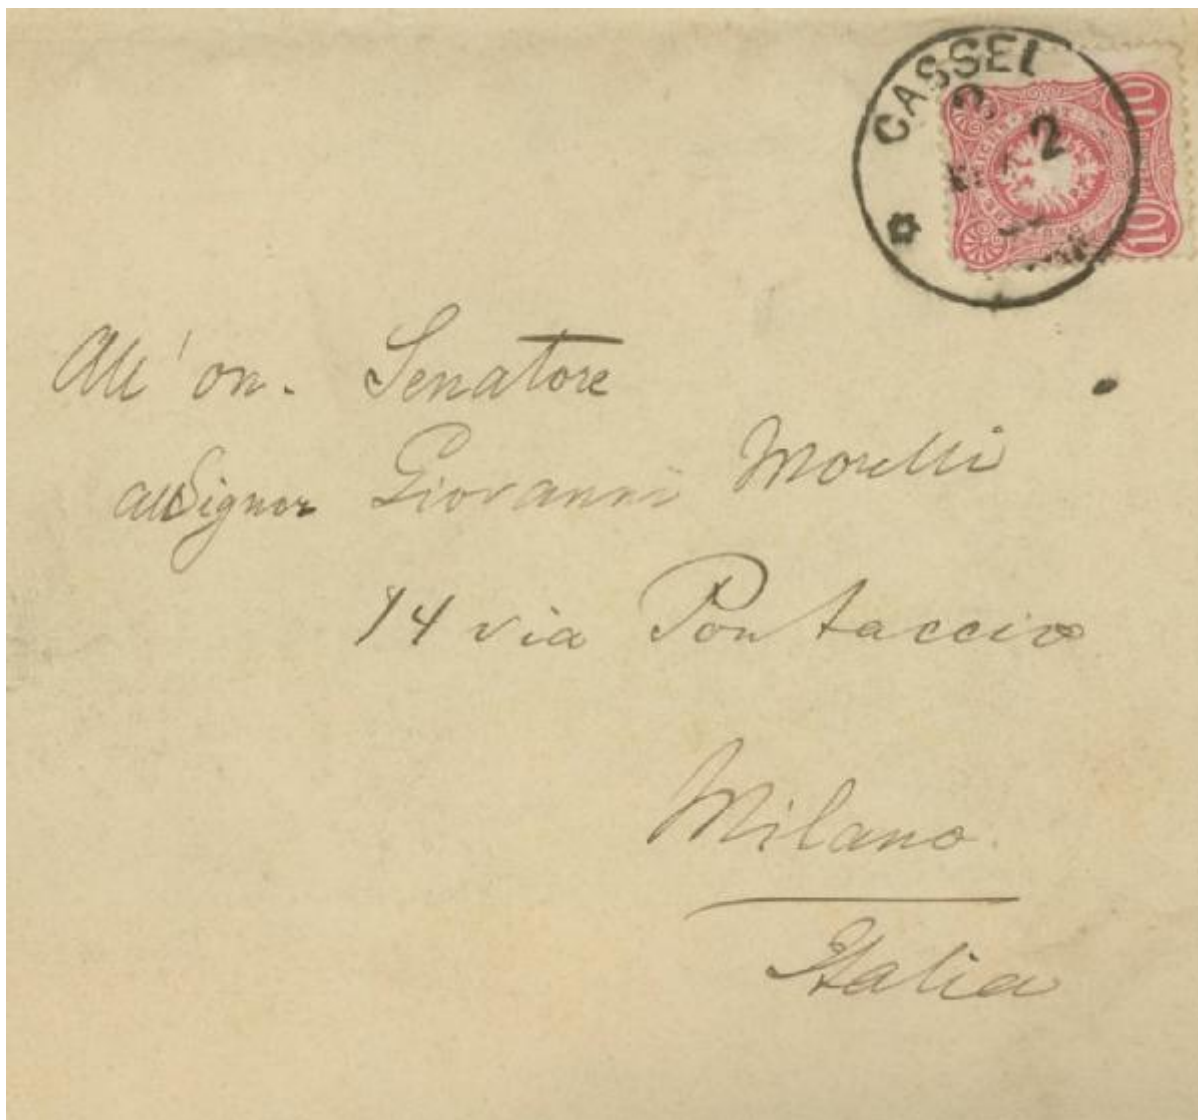 CASSEL
2
10
10
All' on. Senatore
all Signor Giovanni Morelli
14 via Pontaccio
Milano.
Italia